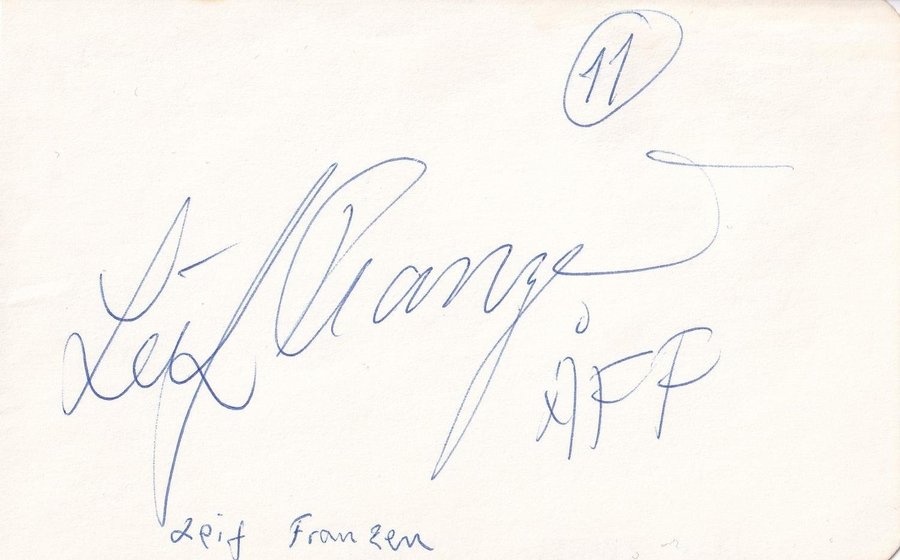 11
Leif Franzé
ÅFF
Leif Franzen